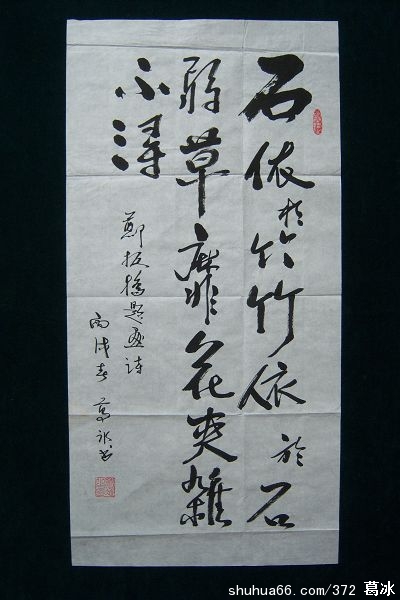 石依於竹竹依於石
弱草靡花夾雜
不得
鄭板橋題畫詩
丙戌春 葛冰書
shuhua66.com/372 葛冰